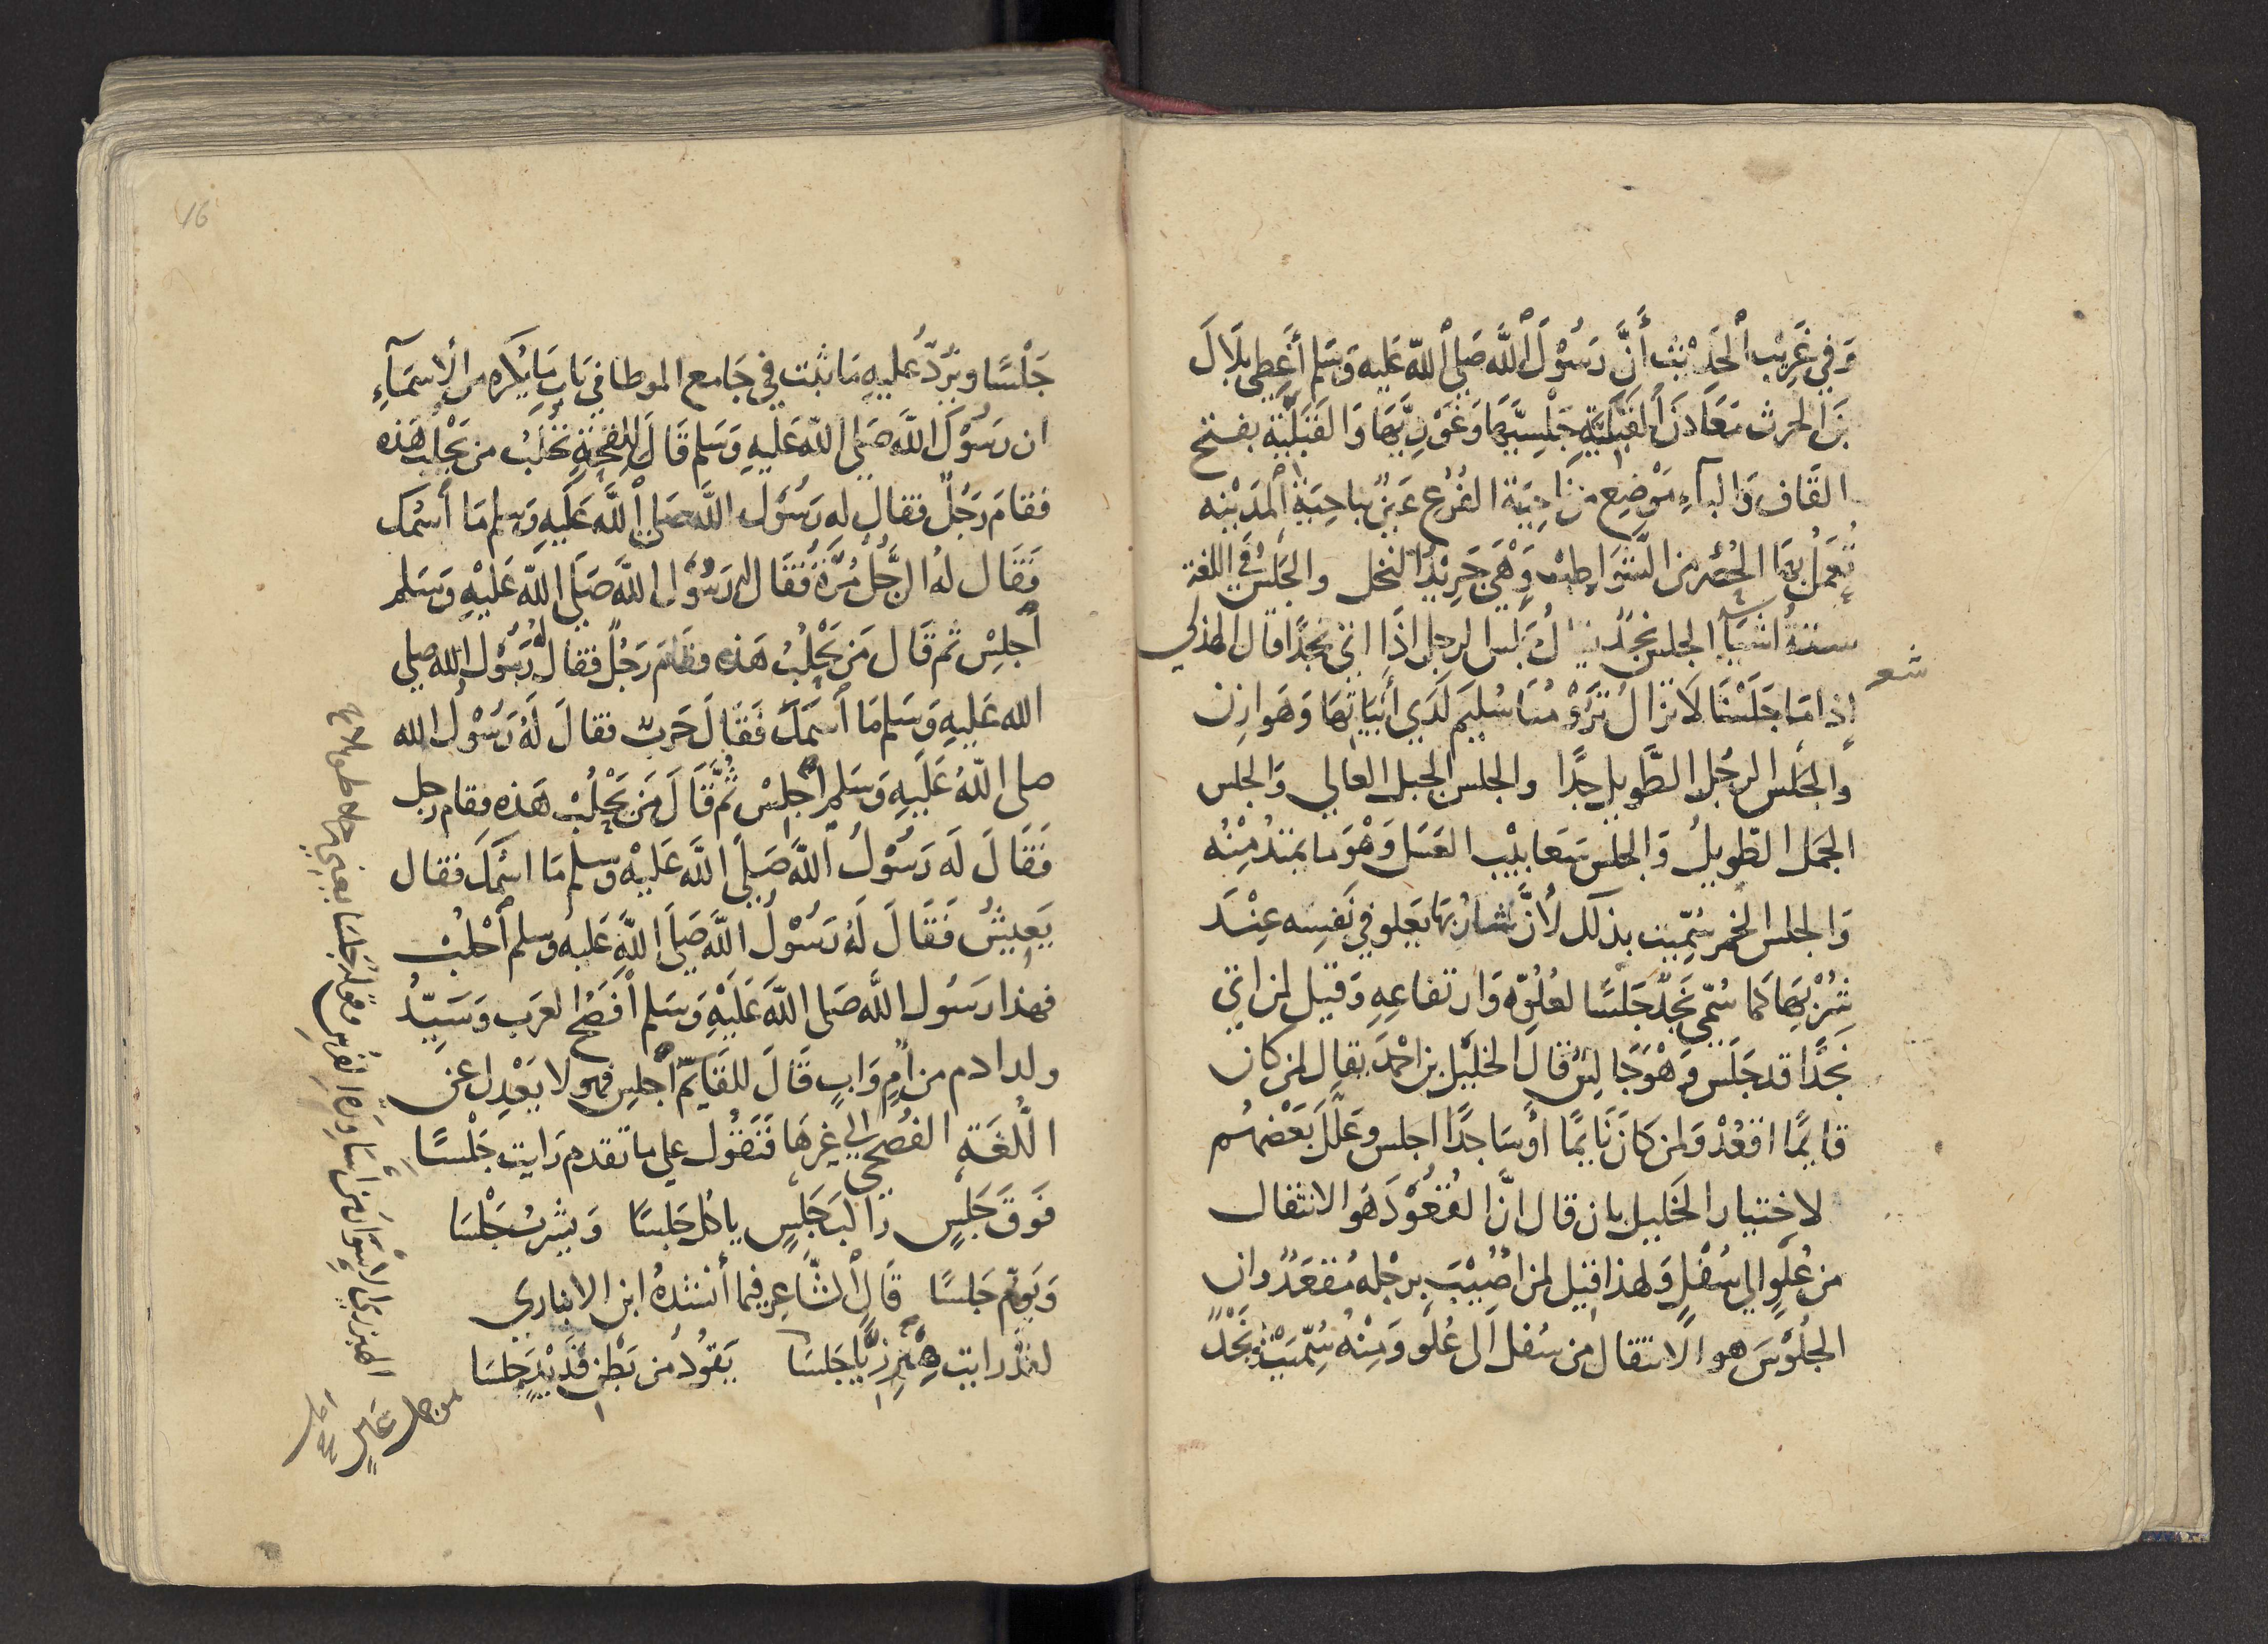 وَفي غَرِيْب الْحَدِيْث أَنَّ رَسُوْلَ اللَّه صَلى اللَّه عَليه وَسَلم أَعْطى بِلَالَ
بنَ الحرث مَعَادنَ القَبَلِيَّةِ جَلْسِيَّهَا وَغَوْرِيَّهَا وَالقَبَلِيَّة بفتح
القَاف وَالبَآءِ مَوْضِع من نَاحِيَة الفُرْع عَيْنٌ بنَاحِيَةِ المَدِيْنه
تُعْمَلُ بهَا الحُصُر من الشَّوَاطِبْ وَهْيَ جَرِيْدُ النخل والجَلسُ في اللغة
ستةُ اشيَآ الجلس نَجْدٌ يُقَالُ جَلَسَ الرجل اذَا اتى نجدًا قال الهذلي
شعر
إذا مَا جَلَسْنَا لَا تزَالُ تَرُوْمُنَا سُلَيْمٌ لَدَي أَبْيَاتِهَا وَهَوَازن
وَالجَلْس الرجُل الطَّويل جِدًّا والجلس الجبل العالي وَالجلس
الجمل الطّويلُ وَالجلس مَا يَبْ العَسَل وَهْوَ مَا يمتدُ مِنْهُ
وَالجلس الخمر سُمِّيَت بذلك لأنَّ شَارِبَهَا يَعلو في نَفسِه عِنْدَ
شُرْبهَا كما سُمّي نَجْدٌ جَلسًا لعُلُوّه وَارتفاعِهِ وَقيل لمن اتى
نجْدًا قد جَلَسَ وَهْوَ جَالِسٌ قال الخَلِيْل بن احْمَد يقال لمن كان
قايمًا اقعُدْ وَلمن كَانَ نَايمًا أو سَاجدًا اجلس وعَلَّلَ بَعْضُهُم
لاختيار الخَليل بان قال انَّ القُعُوْدَ هَوَ الانتقال
من عُلْوٍ الى سُفْلٍ وَلهذا قيل لمن أُصيْبَتْ برجْله مُقعَدٌ وان
الجُلُوْسَ هو الانتقال من سُفلٍ الى عُلْو وَمِنْهُ سُمّيَتْ نَجْدٌ
16
جَلْسًا ويَرُدّ عليهِ مَا ثبَت في جَامع الموطا في بَاب مَا يُكرَه من الاسمَآءِ
ان رَسُوْلَ اللَّه صَلى اللَّه عَلَيْهِ وَسَلم قَالَ لِلقحَةٍ تُحْلَبُ من يَحْلُبُ هَذه
فقامَ رَجُلٌ فقال له رَسُوْل اللَّه صَلى اللَّه عَلَيهِ وَسلم مَا أسْمُك
فَقَال لهُ الرَّجُلُ مُرَّةُ فَقَال له رَسُوْل اللَّه صَلى اللَّه عَلَيْهِ وَسَلم
اجْلِسْ ثم قَال مَن يَحْلُبُ هَذه فقامَ رَجُلٌ فقال لهُ رَسُوْلُ الله صلى
الله عَلَيهِ وَسَلم مَا اسمُكَ فَقَالَ حَربٌ فقالَ لَهُ رَسُوْلُ الله
صلى اللَّهُ عَلَيهِ وَسَلم اجْلِسْ ثُمَّ قَالَ مَن يَحْلُبُ هَذه فقام رجل
فَقَالَ لَه رَسُوْلُ اللَّه صَلَى اللَّه عَلَيْه وَسلم مَا اسْمُكَ فقال
يَعِيْشُ فَقَالَ لَهُ رَسُوْلُ اللَّه صَلى اللَّه عَليه وَسلم احْلُبْ
فهذا رَسُول اللَّه صَلى اللَّه عَلَيْهِ وَسَلم أفْصَحُ العرَب وَسَيّدُ
ولد ادم من أُمٍ وَابٍ قَالَ للقَايِمِ اجْلِس فهو لا يَعْدِل عن
اللُّغَةِ الفُصحَى الى غيرهَا فَتقُول على ما تقدم رَايت جَلْسًا
فَوقَ جَلْسٍ رَاكبَ جَلسٍ ياكُل جَلسًا وَيشربُ جَلْسَا
وَيَؤُم جَلسًا قَال الشَّاعر فيما أنشدهُ ابن الانباري
لقدْ رَايت هِبْرِزِيًّا جَلسَا يَقُودُ من بَطْنِ قُدَيْدٍ جلسَا
الهبزري الاسْوَار من أسَاوِرَة الفُرس